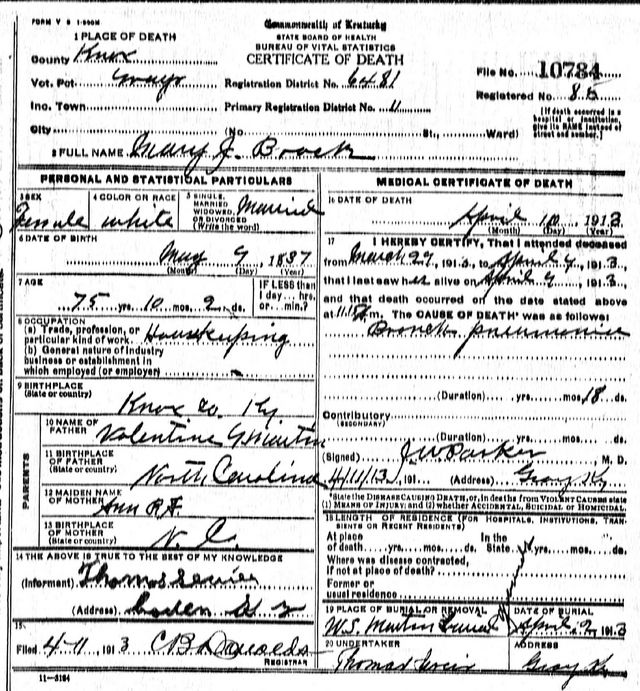 FORM V S 1-500M
Commonwealth of Kentucky
STATE BOARD OF HEALTH
BUREAU OF VITAL STATISTICS
CERTIFICATE OF DEATH
1 PLACE OF DEATH
County Knox
Vot. Pct Grays
Registration District No. 6481
File No. 10784
Inc. Town
Primary Registration District No. 11
Registered No. 85
City (No. St., Ward)
[If death occurred in a hospital or institution, give its NAME instead of street and number.]
2 FULL NAME Mary J. Brock
PERSONAL AND STATISTICAL PARTICULARS
3 SEX Female
4 COLOR OR RACE white
5 SINGLE, MARRIED WIDOWED, OR DIVORCED (Write the word) Married
6 DATE OF BIRTH
May 9 1837
(Month) (Day) (Year)
7 AGE
75 yrs. 10 mos. 2 ds.
IF LESS than 1 day... hrs. or... min.?
8 OCCUPATION
(a) Trade, profession, or particular kind of work Housekeeping
(b) General nature of industry business or establishment in which employed (or employer)
9 BIRTHPLACE (State or country)
Knox co. Ky
PARENTS
10 NAME OF FATHER Valentine G Martin
11 BIRTHPLACE OF FATHER (State or country) North Carolina
12 MAIDEN NAME OF MOTHER Ann
13 BIRTHPLACE OF MOTHER (State or country) N C
14 THE ABOVE IS TRUE TO THE BEST OF MY KNOWLEDGE
(Informant) Thomas
(Address)
15.
Filed 4-11, 1913
REGISTRAR
11-3184
MEDICAL CERTIFICATE OF DEATH
16 DATE OF DEATH
April 10 1913
(Month) (Day) (Year)
17 I HEREBY CERTIFY, That I attended deceased
from March 27, 1913, to April 9, 1913,
that I last saw her alive on April 9, 1913,
and that death occurred on the date stated above
at m. The CAUSE OF DEATH* was as follows:
Bronch pneumonia
(Duration) yrs. mos. 18 ds.
Contributory (SECONDARY)
(Duration) yrs. mos. ds.
(Signed) J W Parker M. D.
4/11/13, 191 (Address) Grays Ky
*State the DISEASE CAUSING DEATH, or, in deaths from VIOLENT CAUSES state (1) MEANS OF INJURY; and (2) whether ACCIDENTAL, SUICIDAL or HOMICIDAL.
18 LENGTH OF RESIDENCE (FOR HOSPITALS, INSTITUTIONS, TRANSIENTS OR RECENT RESIDENTS)
At place of death yrs. mos. ds. In the State yrs. mos. ds.
Where was disease contracted, if not at place of death?
Former or usual residence
19 PLACE OF BURIAL OR REMOVAL W.S. Martin
DATE OF BURIAL April 1913
20 UNDERTAKER Thomas
ADDRESS Grays Ky